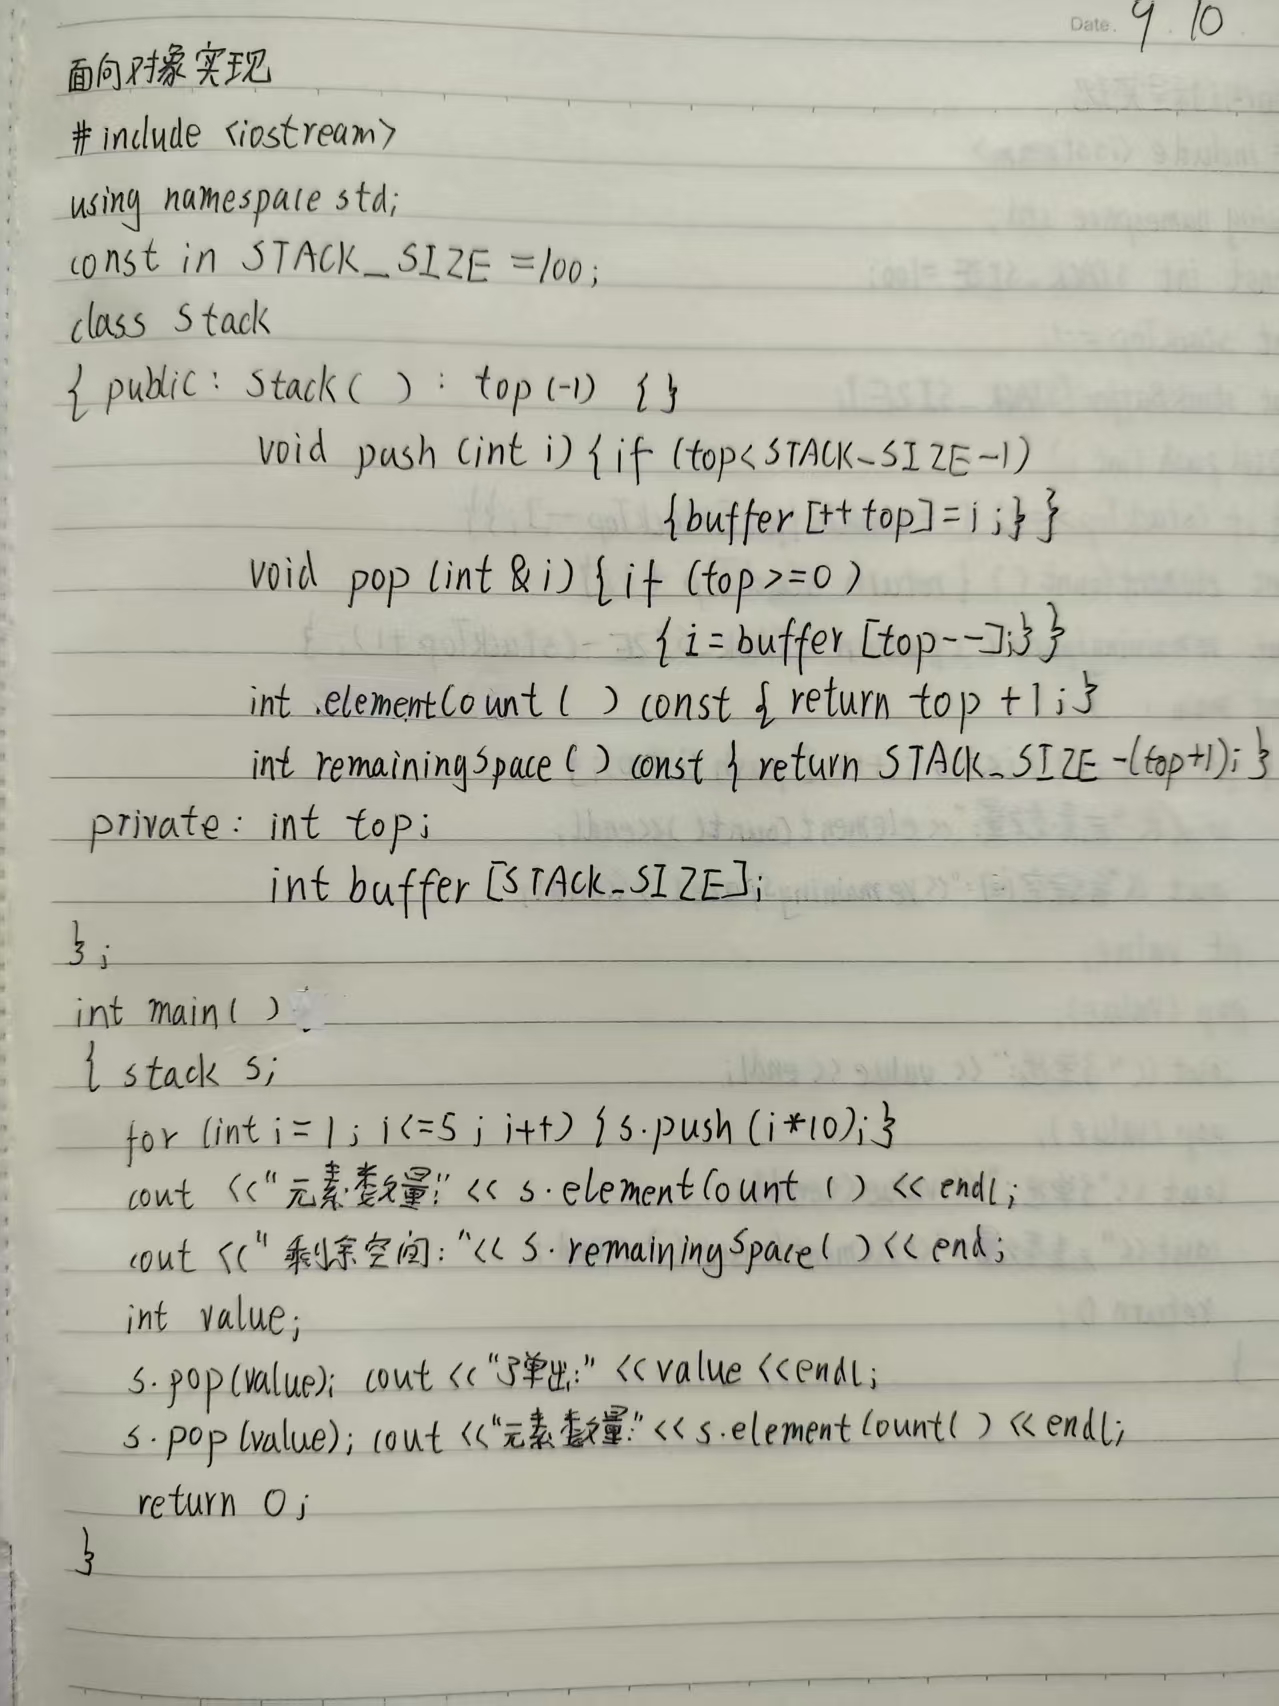 Date. 9.10
面向对象实现
#include <iostream>
using namespace std;
const in STACK_SIZE =100;
class Stack
{ public: Stack( ) : top(-1) {}
void push (int i){if (top<STACK_SIZE-1)
{buffer[++top]=i;}}
void pop (int &i){if (top>=0)
{i=buffer[top--];}}
int .elementCount( ) const { return top +1;}
int remainingSpace( ) const { return STACK_SIZE -(top+1); }
private: int top;
int buffer [STACK_SIZE];
};
int main( )
{ stack s;
for (int i=1; i<=5; i++) {s.push (i*10);}
cout <<"元素数量:" << s.elementCount () << endl;
cout <<"剩余空间:"<< s.remainingSpace( ) << end;
int value;
s.pop(value); cout <<"弹出:" <<value <<endl;
s.pop(value); cout <<"元素数量:"<< s.elementCount( ) << endl;
return 0;
}